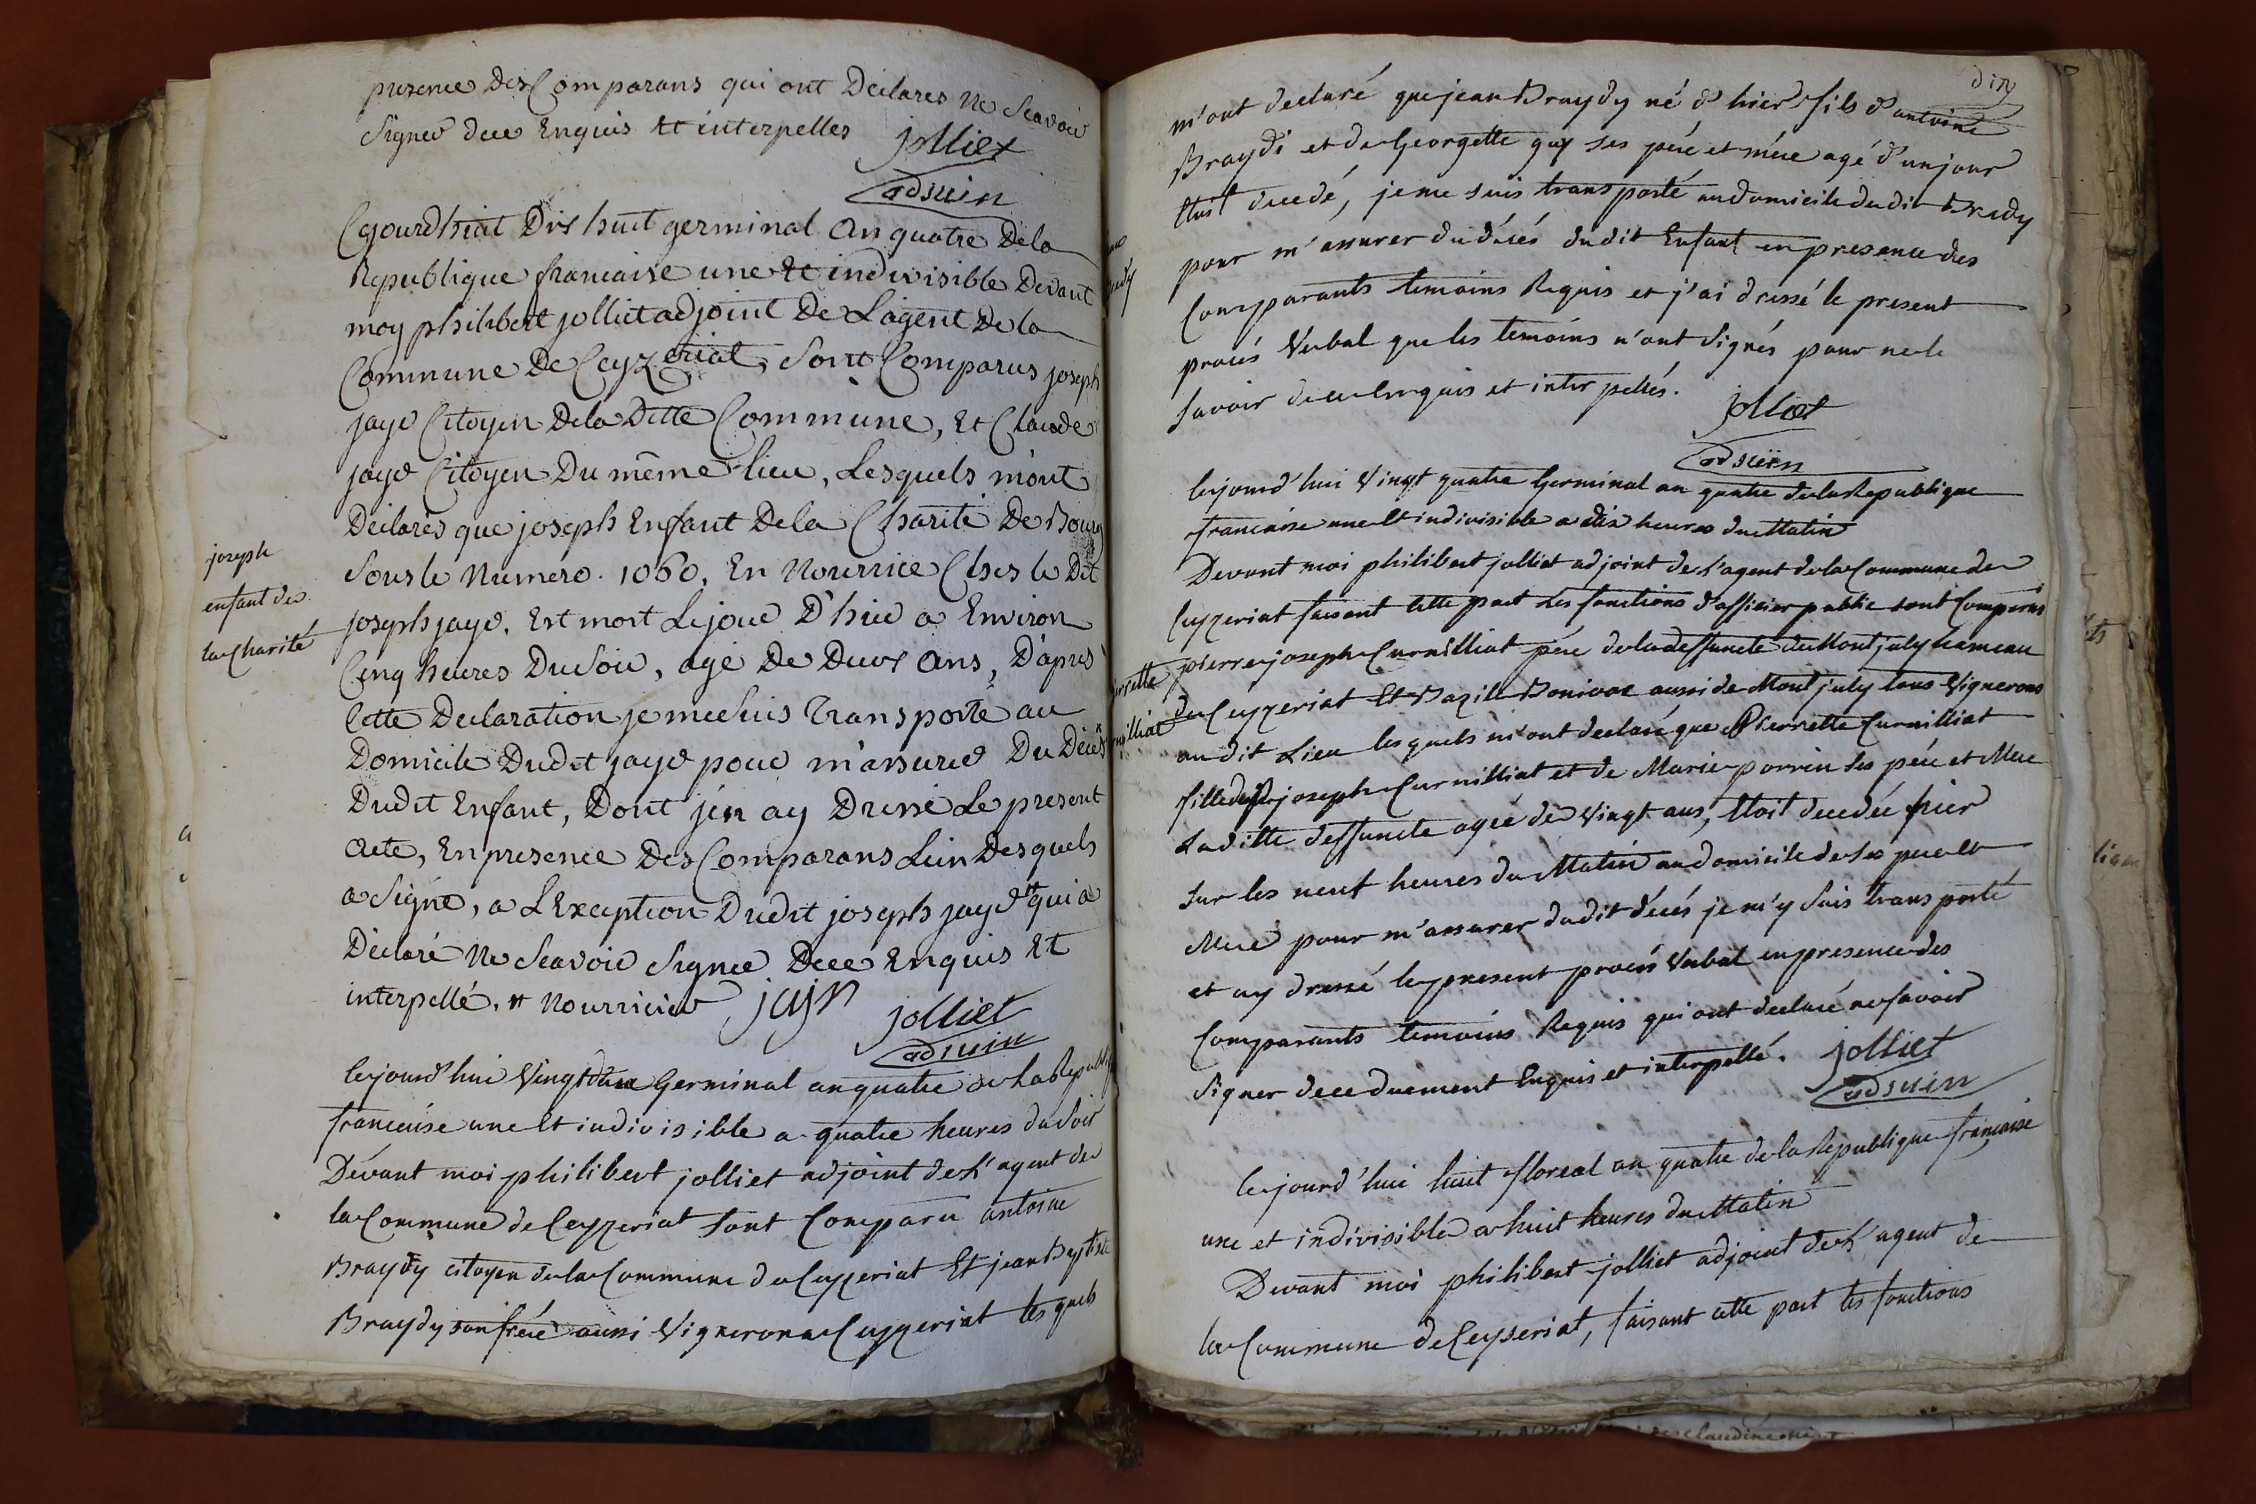 presence des Comparans qui ont Déclarés ne Scavoir
Signer dece Enquis Et interpelles jolliet
adjoin
Cejourdhiut Dix huit germinal an quatre De la
Republique francaise une Et indivisible Devant
moy philibert jolliet adjoint De Lagent De la
Commune De Ceyzeriat, Sont Comparus joseph
jayr Citoyen De la Ditte Commune, Et Claude
jayr Citoyen Du même lieu, Lesquels m'ont
Déclarés que joseph Enfant De la Charité De Bourg
Sous le Numero. 1060, En Nourrice Ches le Dit
joseph jayr, Est mort Le jour D'hier a Environ
Cinq heures Du Soir, agé De Deux ans, D'après
Cette Declaration je me Suis Transporté au
Domicile Dudit jayr pour m'assurer Du Décès
Dudit Enfant, Dont j'en ay Dressé Le present
acte, En presence Des Comparans Lun Desquels
a Signé, a L'Exception Dudit joseph jayr qui a
Déclaré Ne Scavoir Signer Dece Enquis Et
interpellé. Nourricier jayr jolliet
adjoin
joseph
enfant de
la Charité
Cejourd'hui Vingt Germinal an quatre de La Republique
francaise une Et indivisible a quatre heures du Soir
Dévant moi philibert jolliet adjoint de L'agent de
la Commune de Ceyzeriat Sont Comparu antoine
Braydy citoyen de la Commune de Ceyzeriat Et jean Baptiste
Braydy son frére aussi Vigneron a Ceyzeriat les quels
dix
m'ont declaré que jean Braydy né d'hier fils d'antoine
Braydi et de Georgette guy ses pére et mére agé d'un jour
Etoit decedé, je me suis transporté au domicile du dit Bredy
pour m'assurer du décés du dit Enfant en presence des
Comparants temoins Requis et j'ai dressé le present
procés Verbal que les temoins n'ont Signés pour ne le
Savoir de ce Enquis et interpellés.
jolliet
adjoin
Cejourd'hui Vingt quatre Germinal an quatre de la Republique
francaise une Et indivisible a dix heures du Matin
Devant moi philibert jolliet adjoint de L'agent de la Commune de
Ceyzeriat faisant Cette part Les fonctions d'officier public sont Comparus
pierre joseph Curnilliat pére de la deffuncte du Mont july hameau
de Ceyzeriat Et Bazile Bonivar aussi de Mont july tous Vignerons
au dit Lieu lesquels m'ont declaré que Pierrette Curnilliat
fille de joseph Curnilliat et de Marie perrin ses pére et Mere
Laditte deffuncte agée de Vingt ans, Etoit decedée hier
sur les neuf heures du Matin au domicile de ses pere et
Mere pour m'assurer du dit décés je m'y suis transporté
et ay dressé le present procés Verbal en presence des
Comparants temoins Requis qui ont declaré ne savoir
Signer de ce duement Enquis et interpellé. jolliet
adjoin
Cejourd'hui huit floreal an quatre de la Republique française
une et indivisible a huit heures du Matin
Devant moi philibert jolliet adjoint de L'agent de
la Commune de Ceyseriat, faisant cette part les fonctions